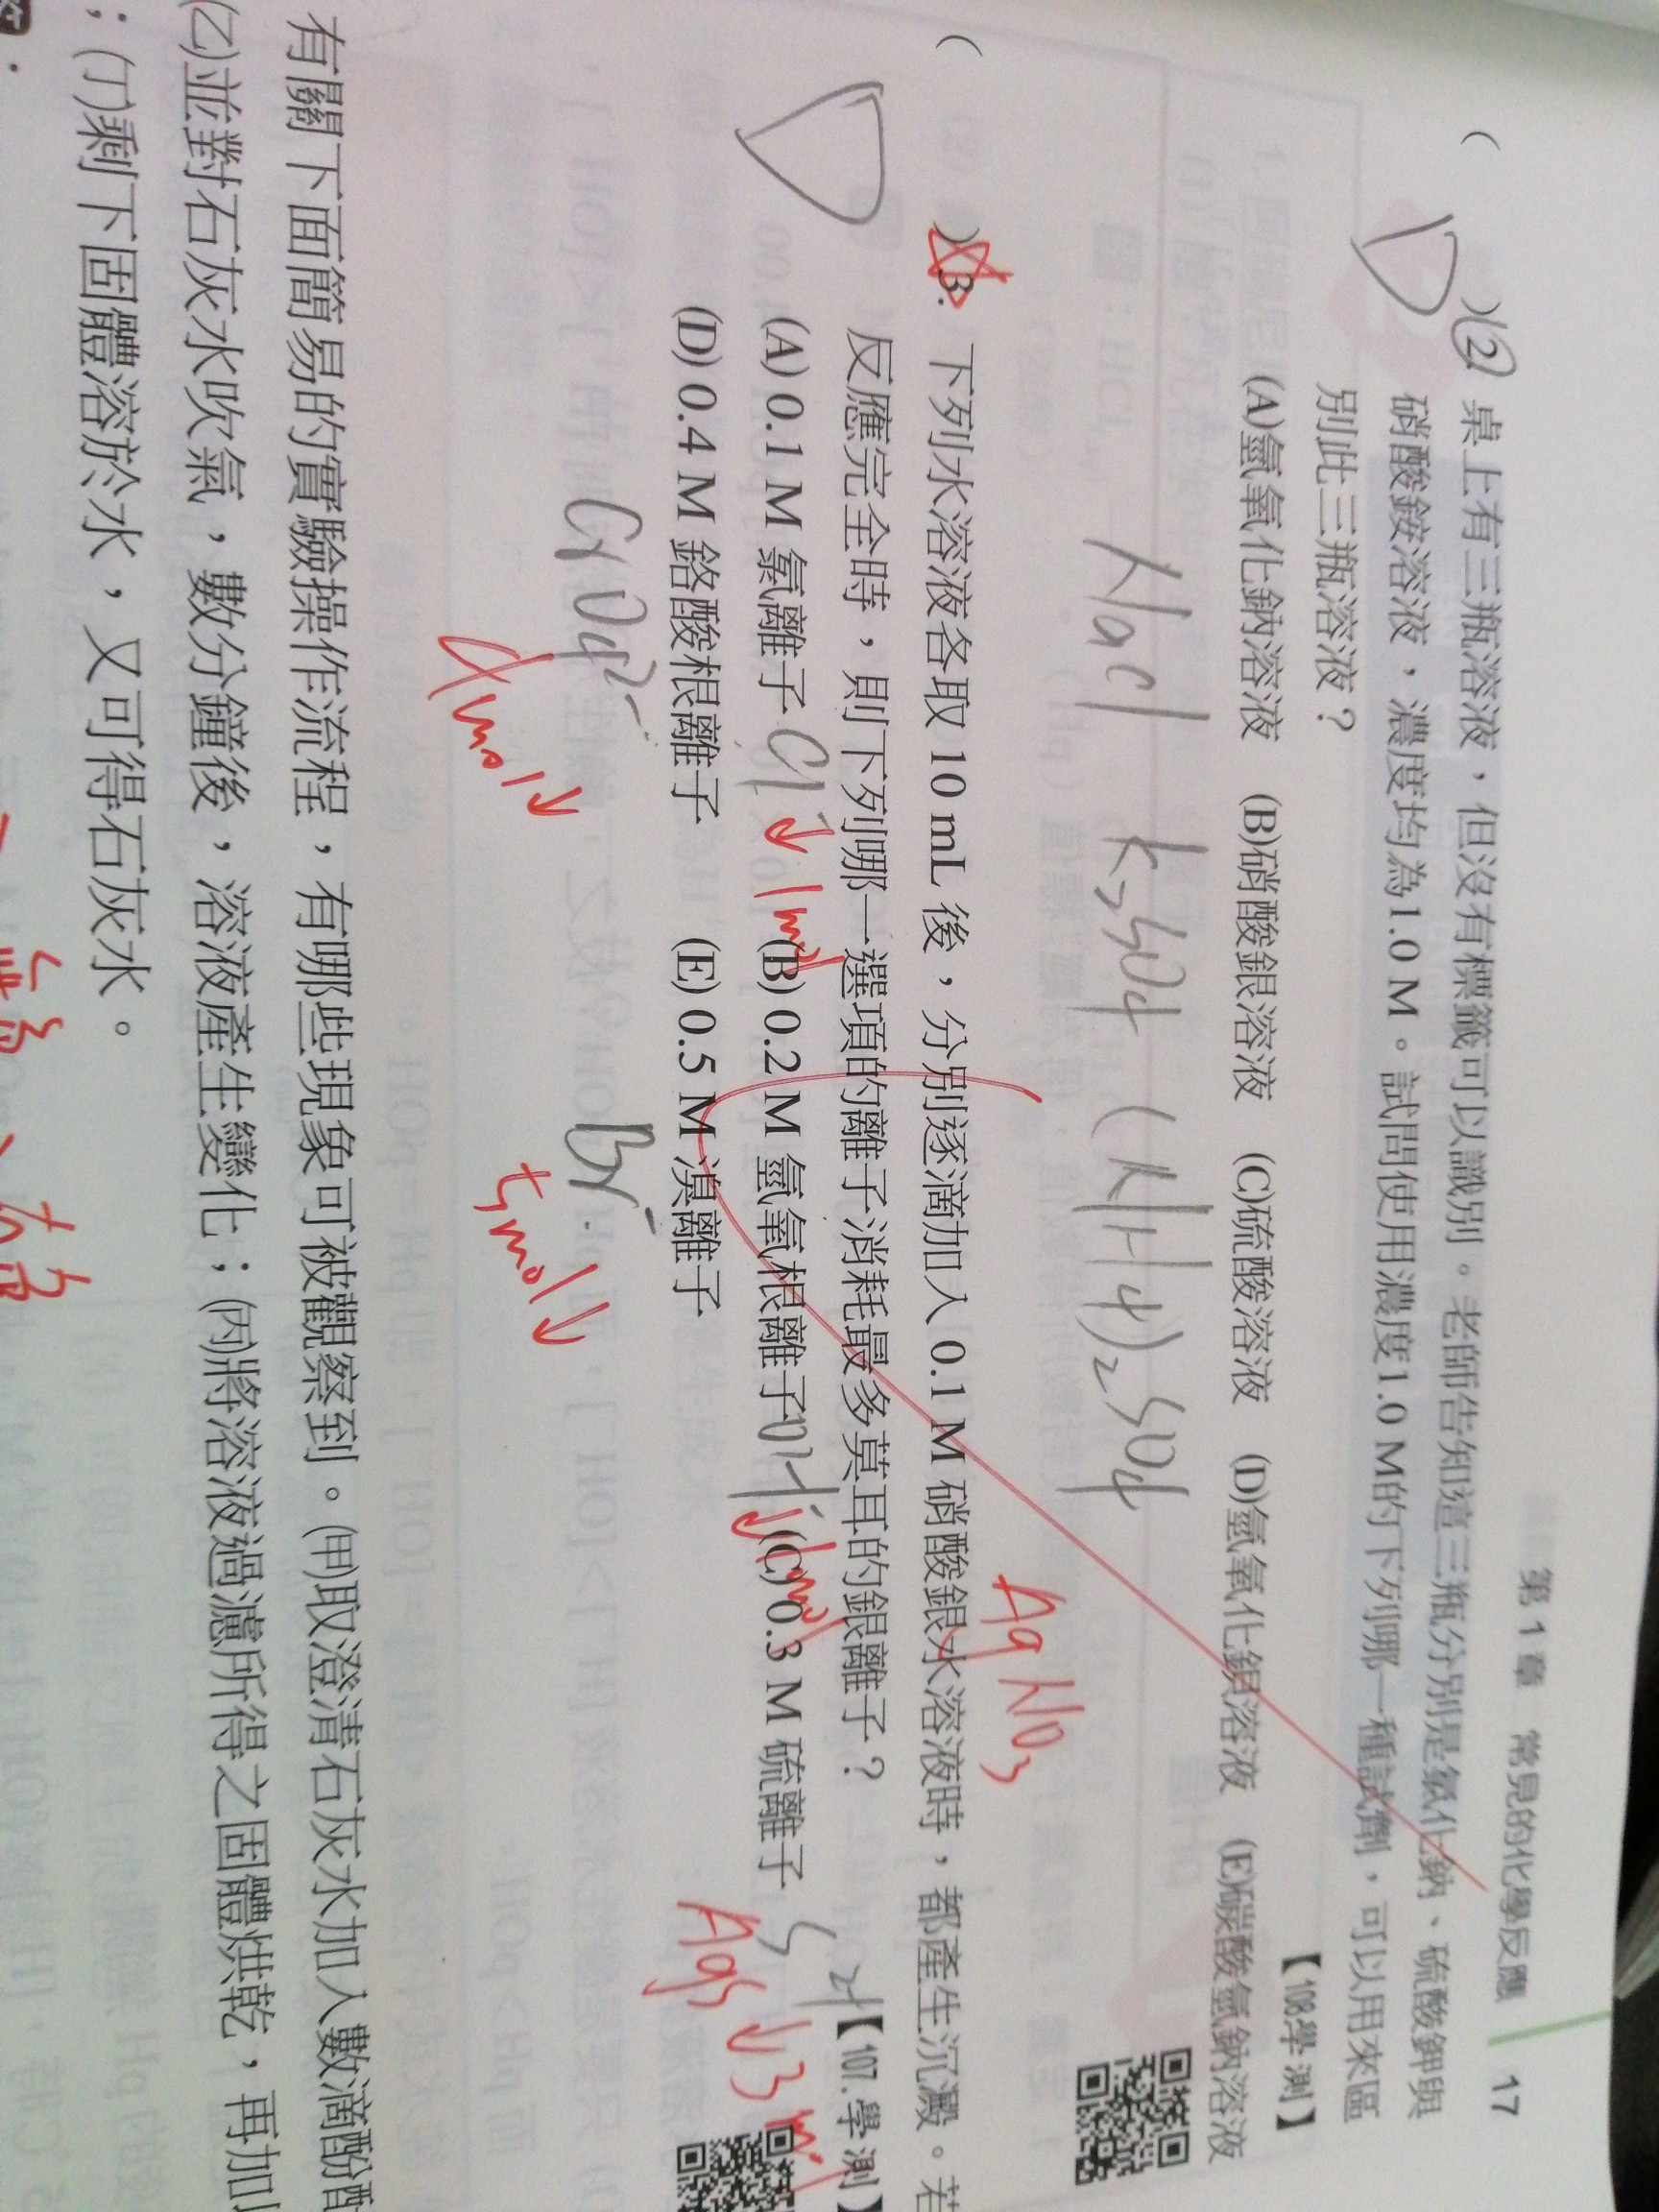 第 1 章　常見的化學反應　17
( D )(2) 桌上有三瓶溶液，但沒有標籤可以識別。老師告知這三瓶分別是氯化鈉、硫酸鉀與
硝酸銨溶液，濃度均為1.0 M。試問使用濃度1.0 M的下列哪一種試劑，可以用來區
別此三瓶溶液？
【108學測】
(A)氫氧化鈉溶液　(B)硝酸銀溶液　(C)硫酸溶液　(D)氫氧化鋇溶液　(E)碳酸氫鈉溶液
Nacl　K2SO4　(NH4)2SO4
AgNO3
( D )3. 下列水溶液各取 10 mL 後，分別逐滴加入 0.1 M 硝酸銀水溶液時，都產生沉澱。若
反應完全時，則下列哪一選項的離子消耗最多莫耳的銀離子？
【107.學測】
(A) 0.1 M 氯離子 Cl- ↓ 1mol (B) 0.2 M 氫氧根離子 OH- ↓ (C) 0.3 M 硫離子 S2-
AgS ↓ 3mol
(D) 0.4 M 鉻酸根離子　(E) 0.5 M 溴離子
CrO4 2-　Br-
4mol ↓　5mol ↓
有關下面簡易的實驗操作流程，有哪些現象可被觀察到。(甲)取澄清石灰水加入數滴酚酞
(乙)並對石灰水吹氣，數分鐘後，溶液產生變化；(丙)將溶液過濾所得之固體烘乾，再加
；(丁)剩下固體溶於水，又可得石灰水。